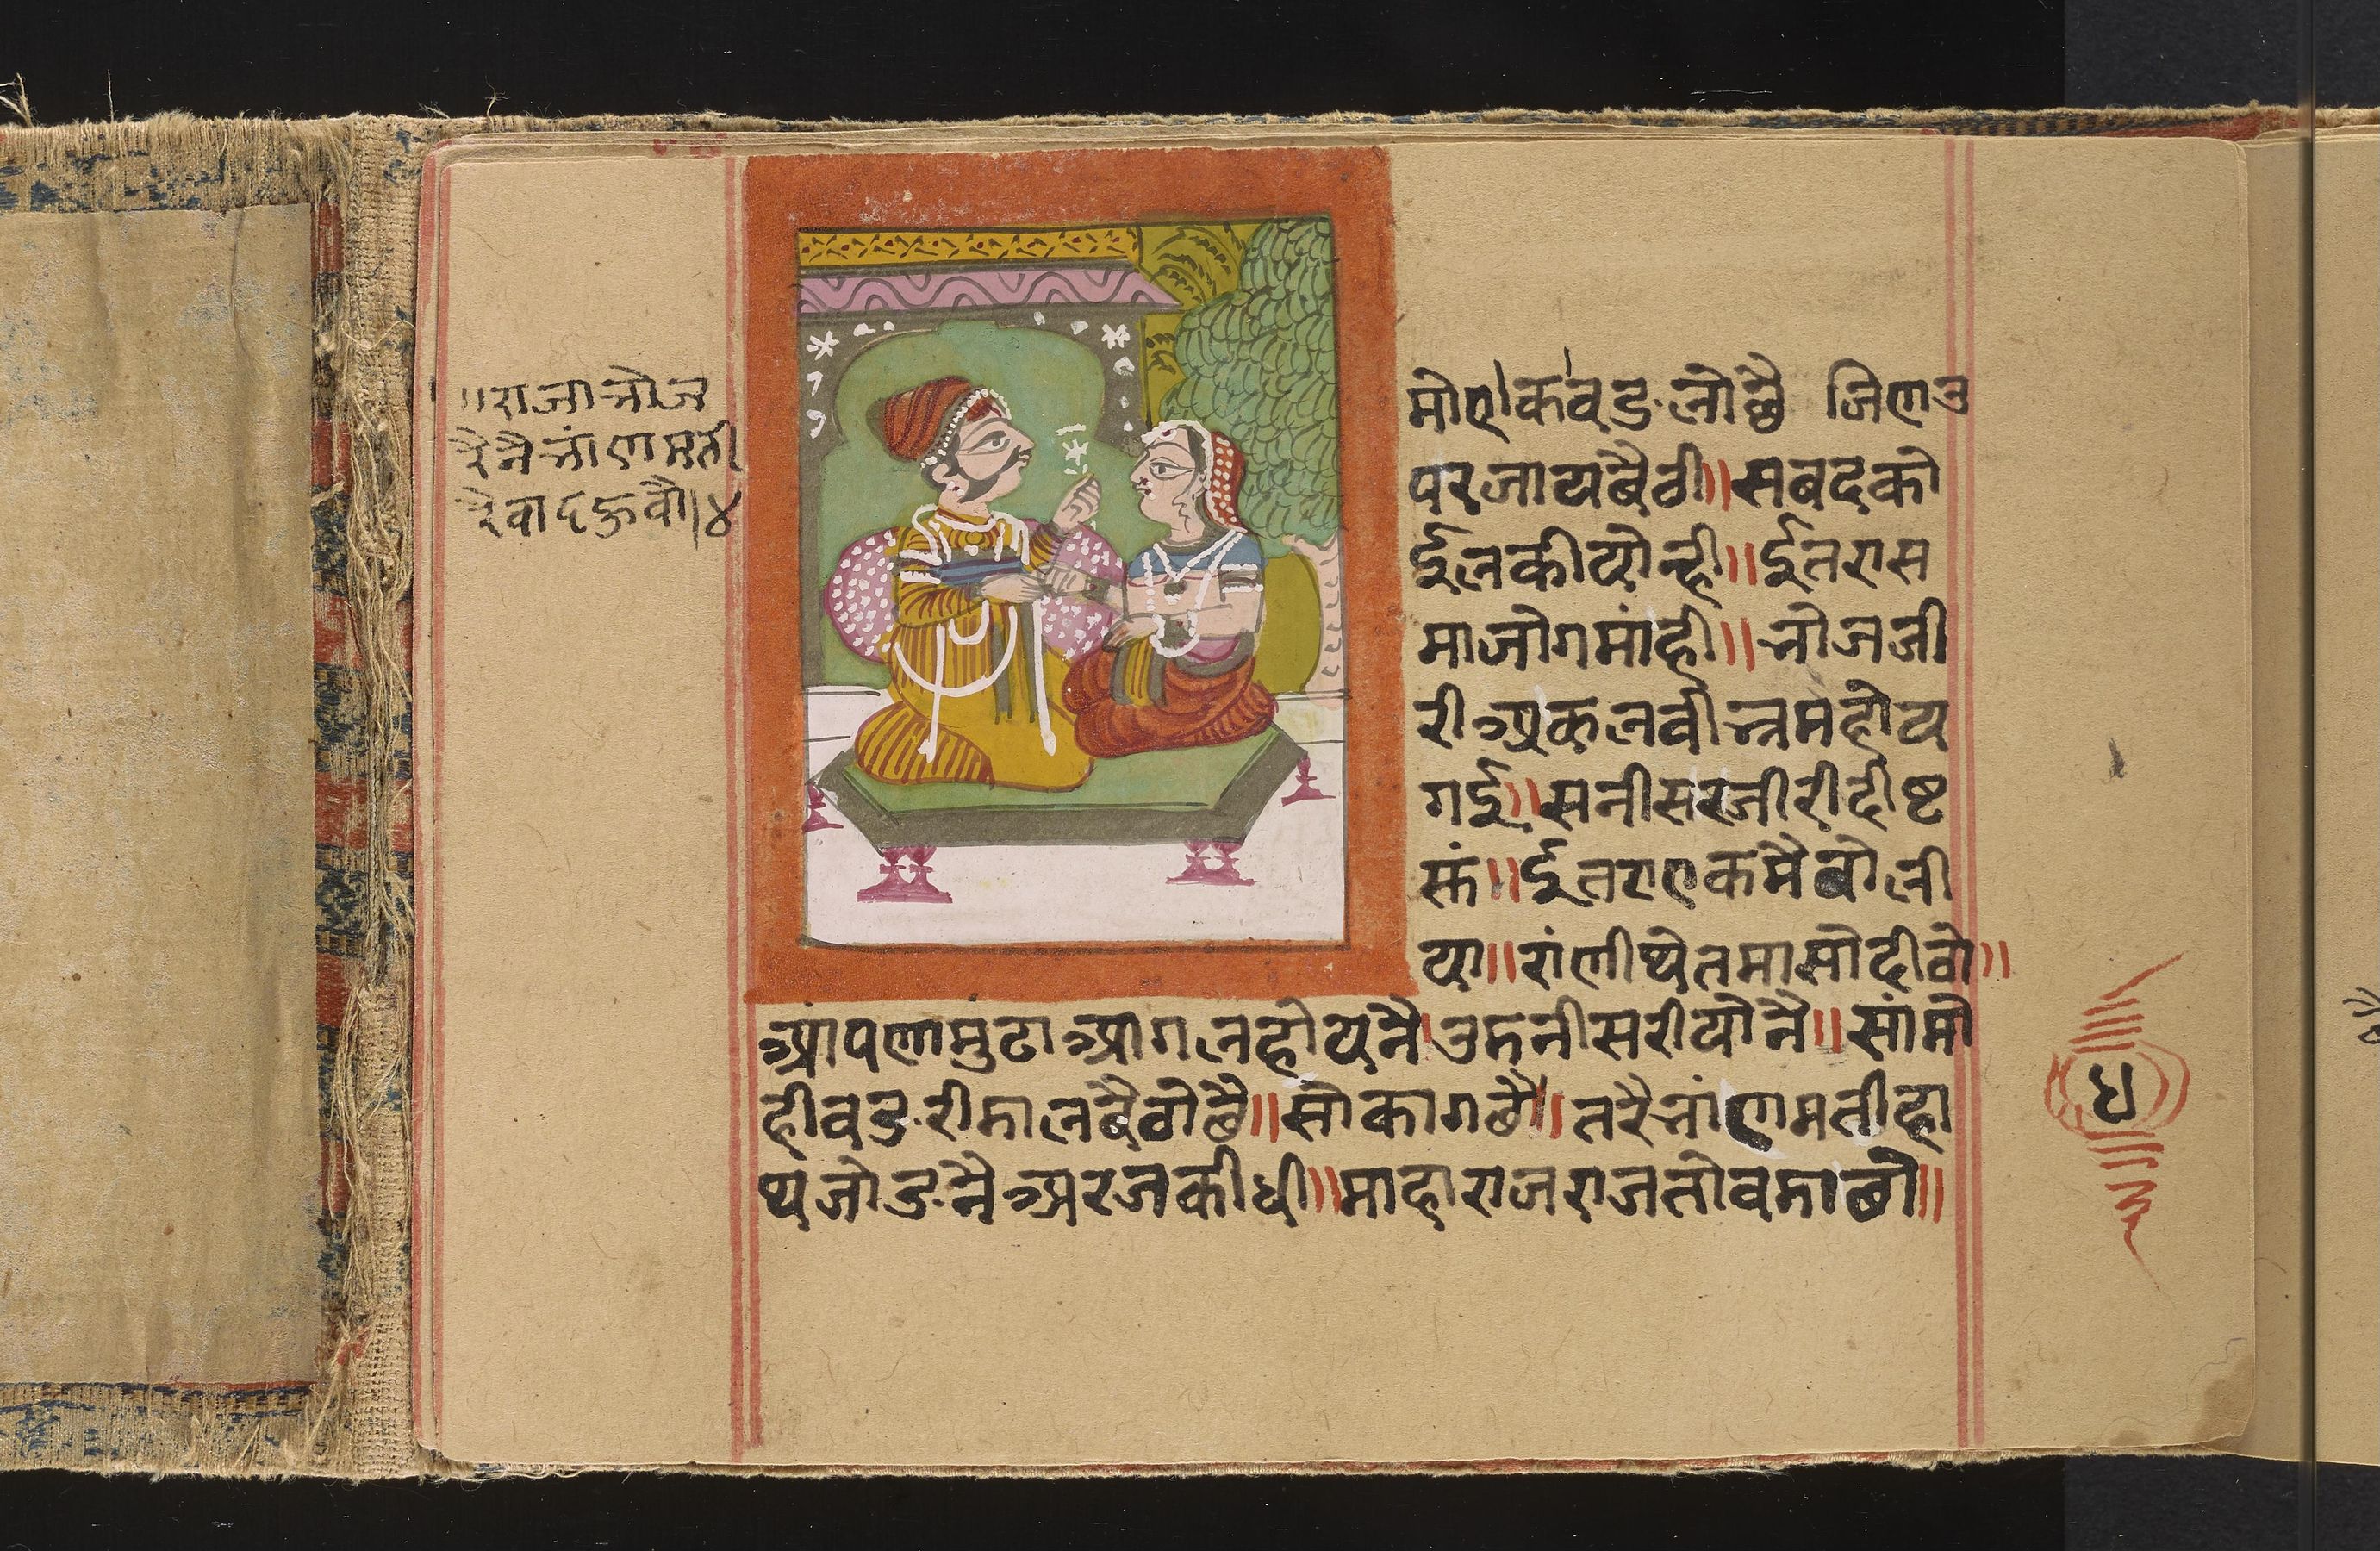 ॥राजा भोज
रै नै भांणमती
रै वाद हुवौ।४
मोएक वडलो छै जिण उ
पर जाय बैठी॥सबद को
ई लकीयो न्ही॥ईतरा स
मा जोग मांही॥भोजजी
री अकल वीभ्रम होय
गई॥सनीसरजी री दीष्ट
सुं॥ईतरा एक मै बोली
या॥रांणी थे तमासो दीठो॥
आंपणा मुढा आगल होय नै उदनीसरीयो नै॥सांमो
ही वड री डाल बैठो छै॥सो काग छै॥तरै भांणमती हा
थ जोड नै अरज कीधी॥माहाराज राज तो वडा छौ॥
५